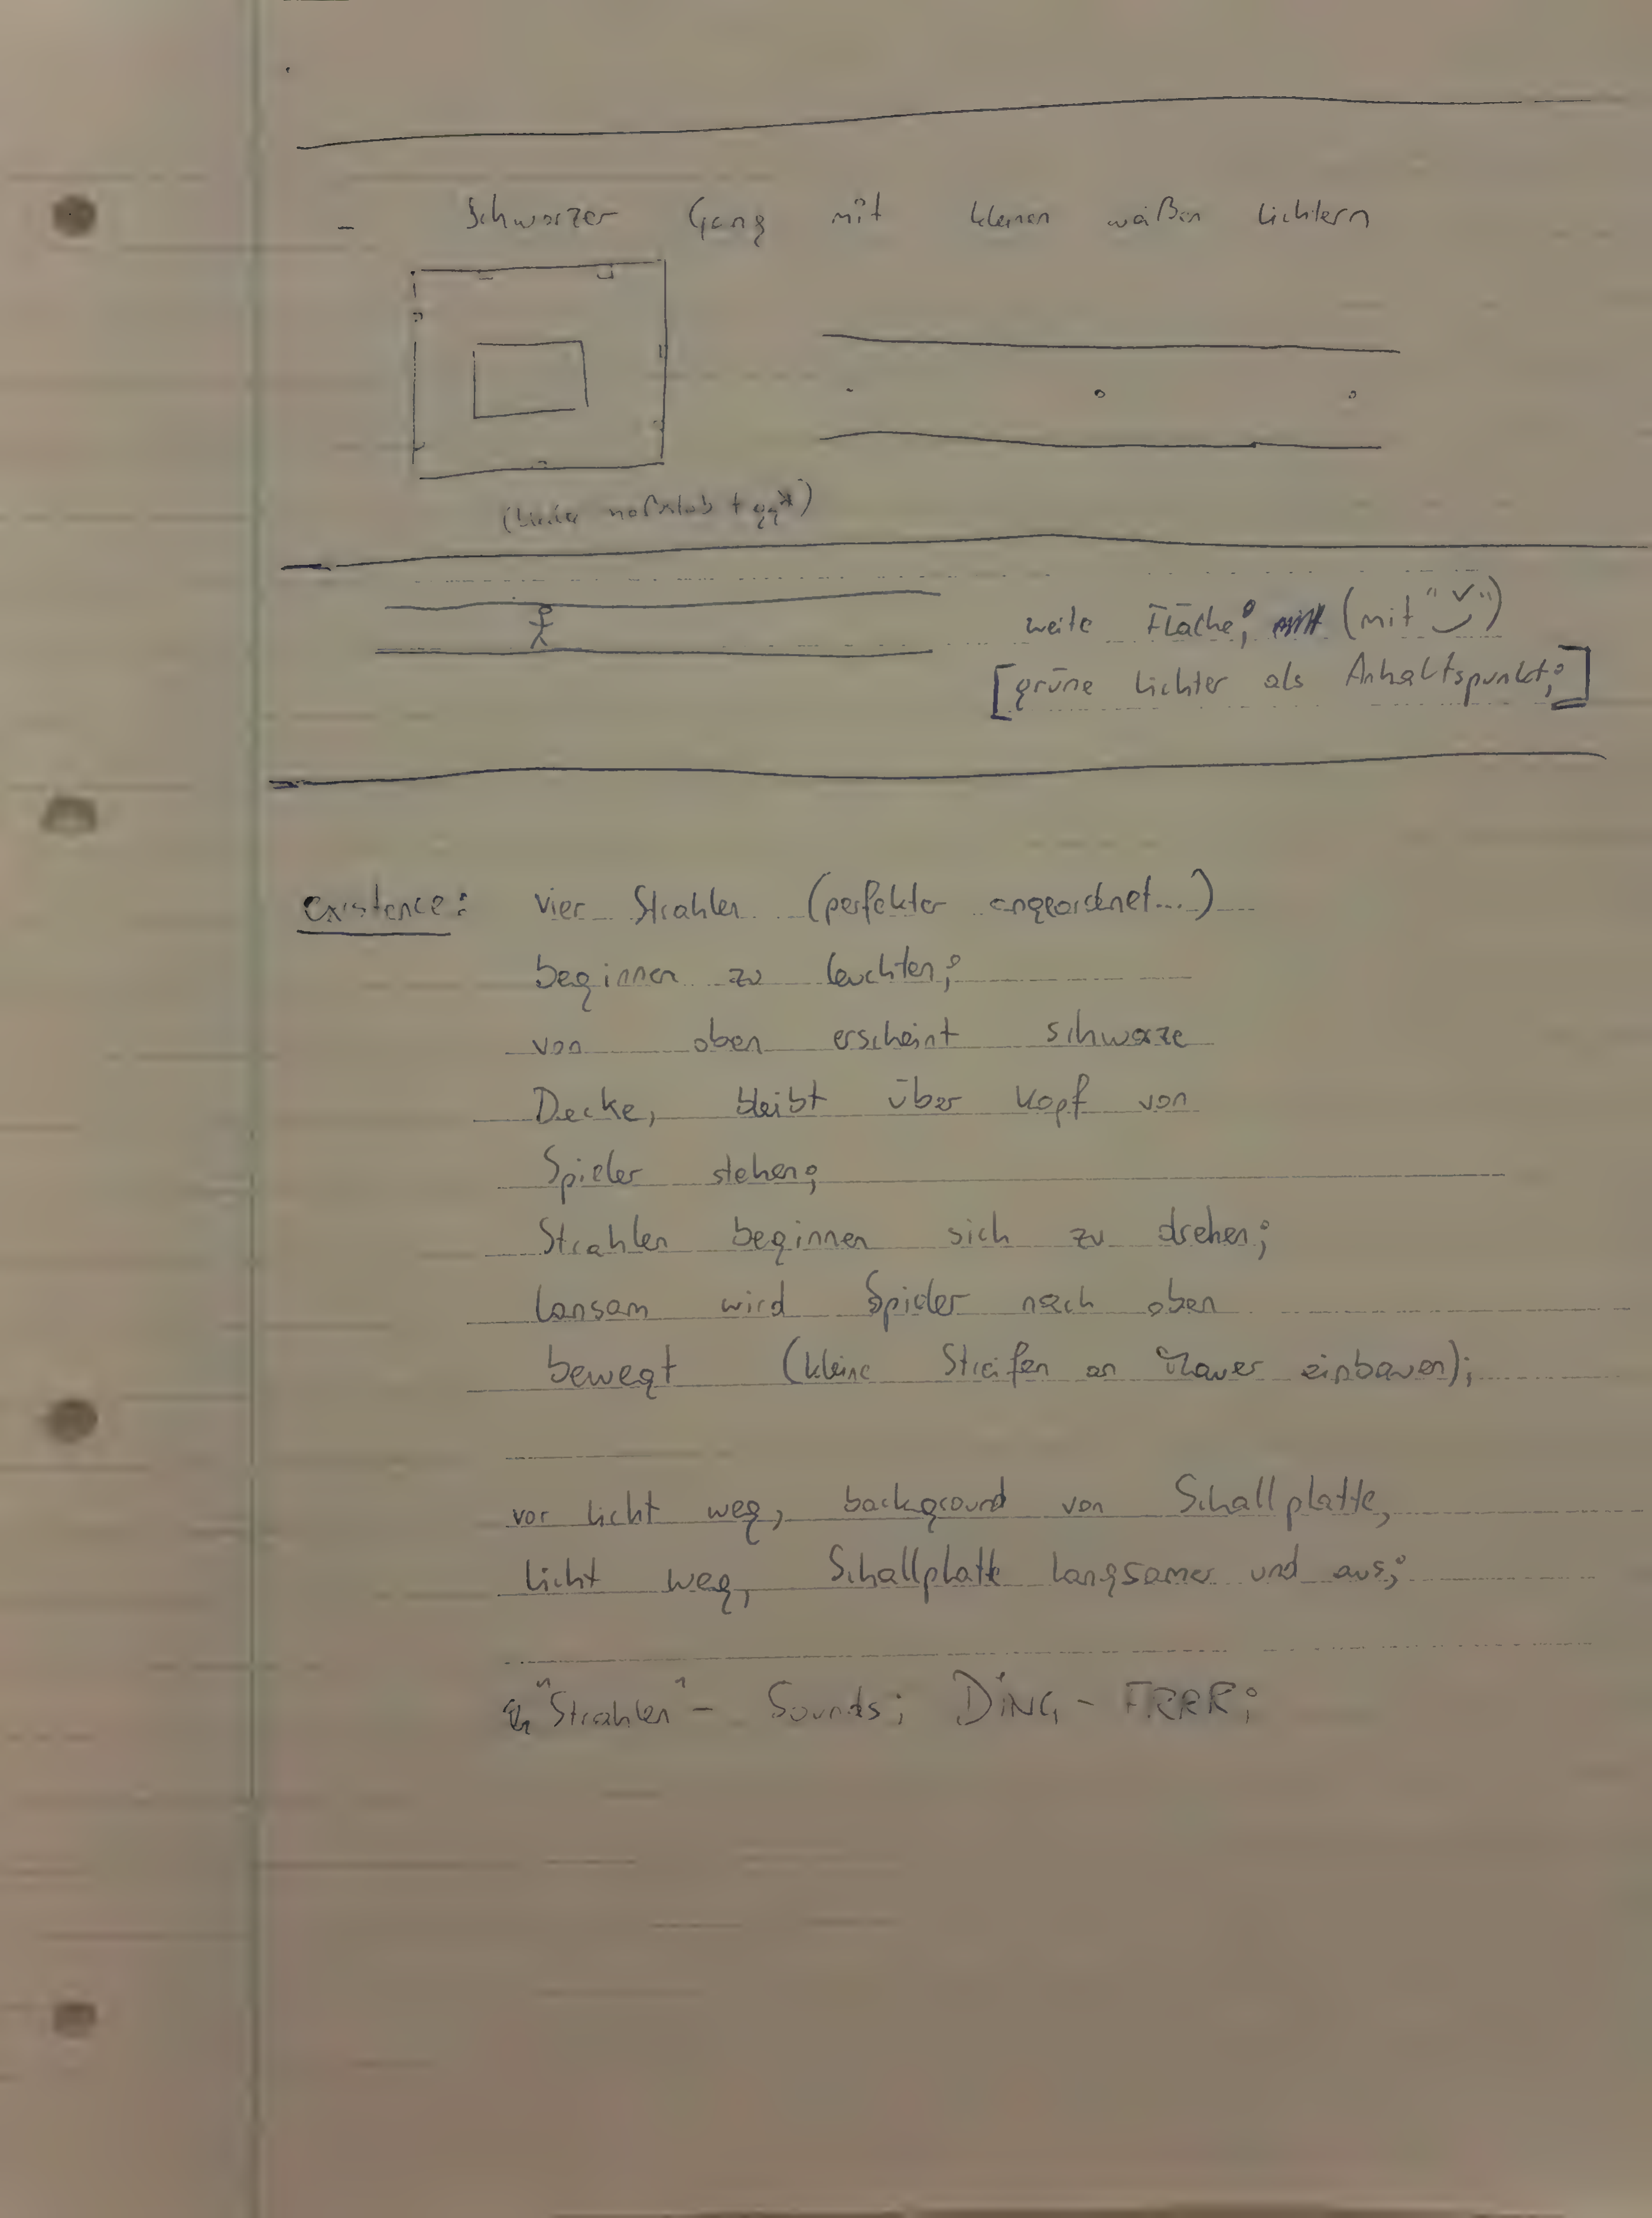 - Schwarzer Gang mit kleinen weißen Lichtern
weite Fläche; (mit "
[grüne Lichter als Anhaltspunkt;]
existence: vier Strahlen (perfekter angeordnet...)
beginnen zu leuchten;
von oben erscheint schwarze
Decke, bleibt über Kopf von
Spieler stehen;
Strahlen beginnen sich zu drehen;
lansam wird Spieler nach oben
bewegt (kleine Streifen an Mauer einbauen);
vor licht weg, background von Schallplatte,
licht weg, Schallplatte langsamer und aus;
"Strahlen" - Sounds; DiNG - FRRR;